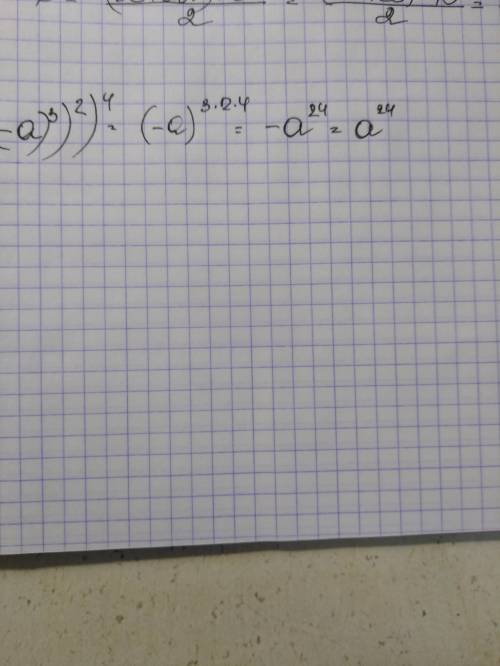 2 2
-a)³))²)⁴ = (-a)³·²·⁴ = -a²⁴ = a²⁴